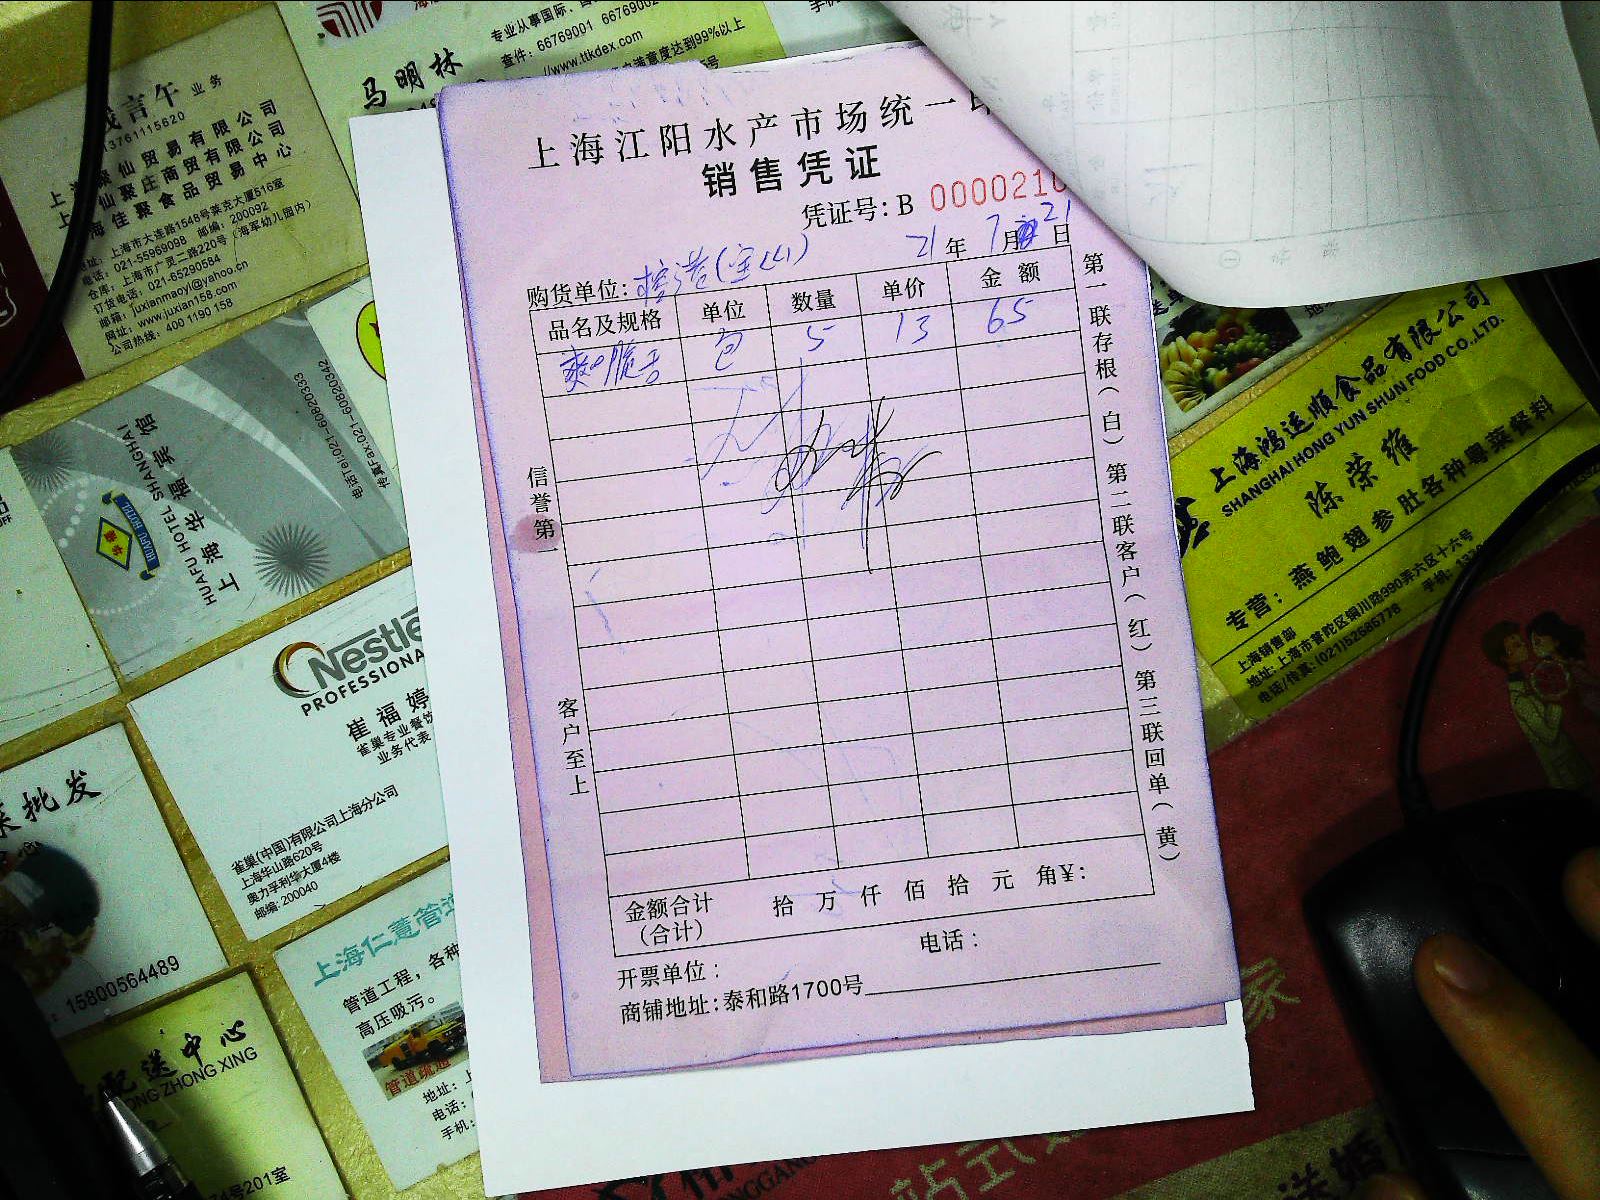 专业从事国际、
查件: 66769001 6676900
//www.ttkdex.com
满意度达到99%以上
马明林
业务
13761115620
仙贸易有限公司
仙聚庄商贸有限公司
海佳聚食品贸易中心
上海市大连路1548号莱克大厦516室
电话: 021-55969098 邮编: 200092
仓库: 上海市广灵二路220号(海军幼儿园内)
订货电话: 021-65290584
邮箱: juxianmaoyi@yahoo.cn
网址: www.juxian158.com
公司热线: 400 1190 158
上海江阳水产市场统一印
销售凭证
凭证号: B 0000210
21 年 7 月 21 日
购货单位: (宝山)
品名及规格 单位 数量 单价 金额
爽口脆舌 包 5 13 65
信誉第一
客户至上
第一联存根(白) 第二联客户(红) 第三联回单(黄)
金额合计
(合计)
拾 万 仟 佰 拾 元 角 ¥:
电话:
开票单位:
商铺地址: 泰和路1700号
电话Tel:021-60820333
传真Fax:021-60820342
上海华福宾馆
HUAFU HOTEL SHANGHAI
Nestlé
PROFESSIONA
崔福婷
雀巢专业餐饮
业务代表
雀巢(中国)有限公司上海分公司
上海华山路620号
奥力孚利华大厦4楼
邮编: 200040
菜批发
15800564489
上海仁薏管道
管道工程，各种
高压吸污。
管道疏通
地址: 上
电话:
手机:
配送中心
ONG ZHONG XING
201室
上海鸿运顺食品有限公司
SHANGHAI HONG YUN SHUN FOOD CO.,LTD.
陈荣维
专营: 燕鲍翅参肚各种粤菜餐料
上海销售部
地址: 上海市普陀区铜川路990弄六区十六号
电话/传真: (021)52685776 手机:
家